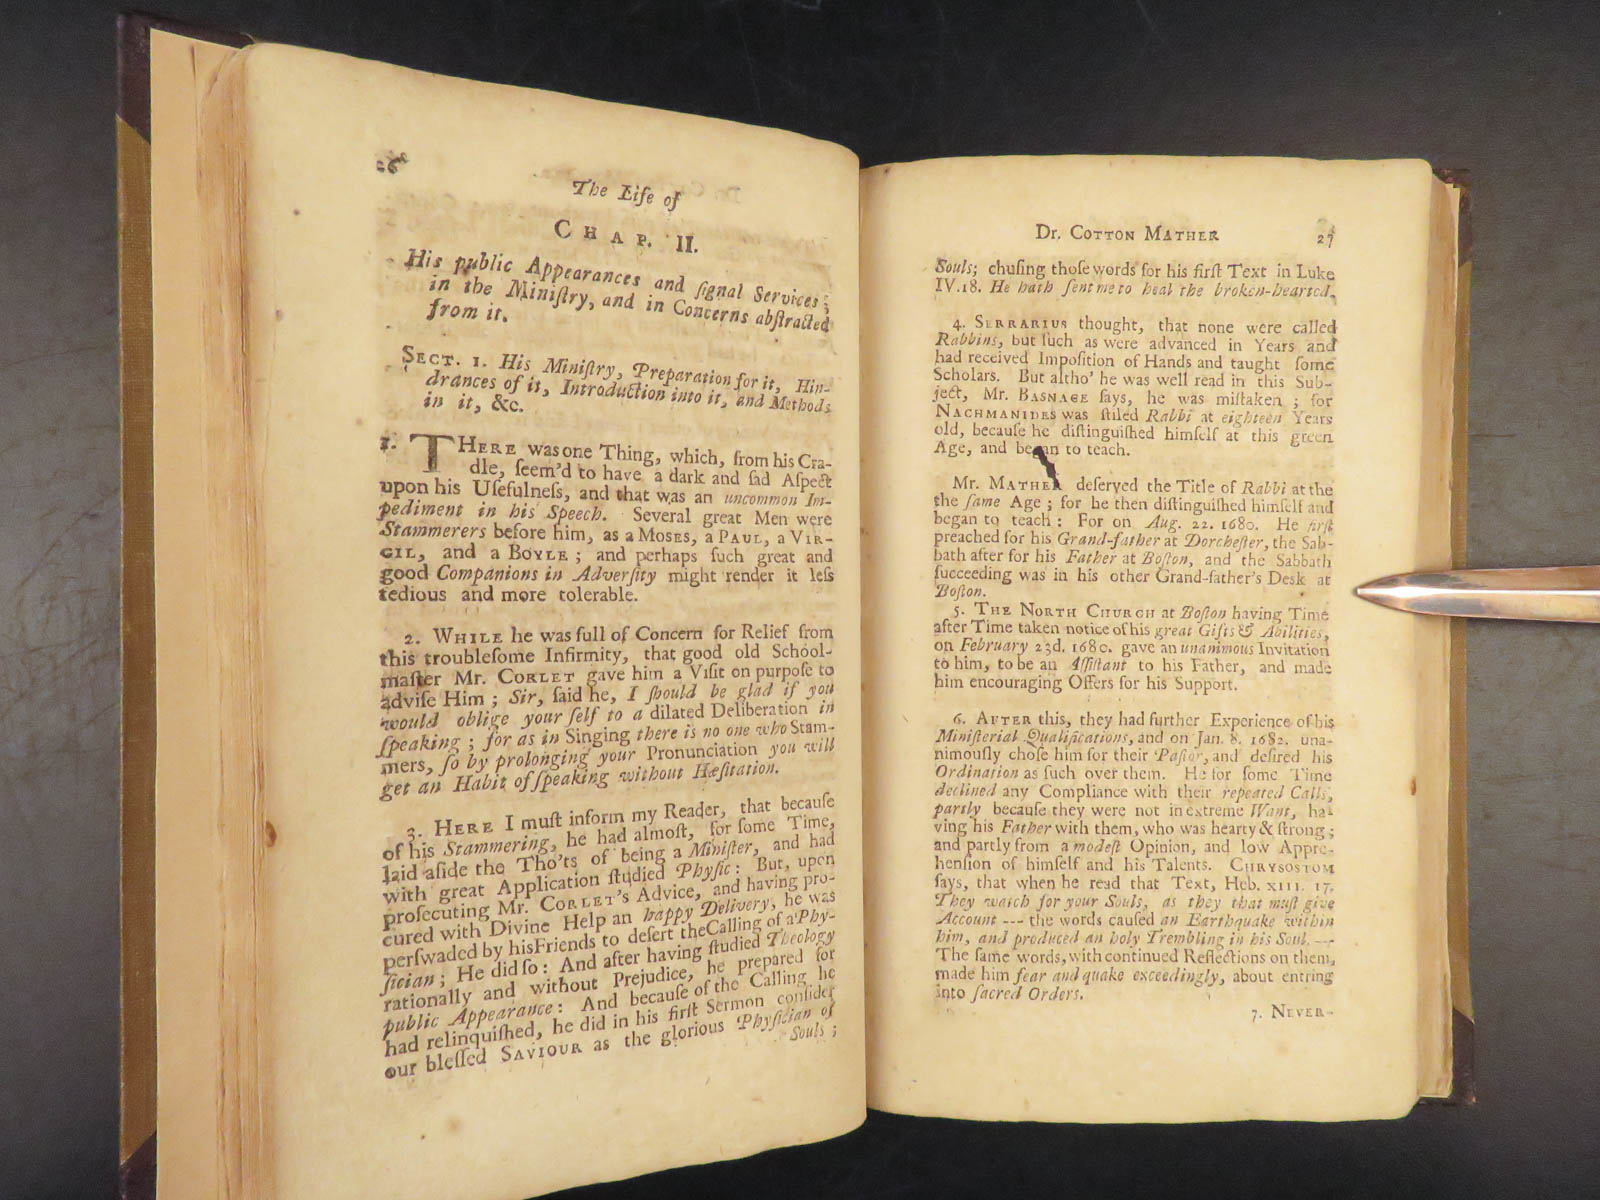 26
The Life of
CHAP. II.
His public Appearances and ſignal Services;
in the Miniſtry, and in Concerns abſtracted
from it.
SECT. 1. His Miniſtry, Preparation for it, Hin-
drances of it, Introduction into it, and Methods
in it, &c.
1. THERE was one Thing, which, from his Cra-
dle, ſeem'd to have a dark and ſad Aſpect
upon his Uſefulneſs, and that was an uncommon Im-
pediment in his Speech. Several great Men were
Stammerers before him, as a MOSES, a PAUL, a VIR-
GIL, and a BOYLE; and perhaps ſuch great and
good Companions in Adverſity might render it leſs
tedious and more tolerable.
2. WHILE he was full of Concern for Relief from
this troubleſome Infirmity, that good old School-
maſter Mr. CORLET gave him a Viſit on purpoſe to
adviſe Him; Sir, ſaid he, I ſhould be glad if you
would oblige your ſelf to a dilated Deliberation in
ſpeaking; for as in Singing there is no one who Stam-
mers, ſo by prolonging your Pronunciation you will
get an Habit of ſpeaking without Hæſitation.
3. HERE I muſt inform my Reader, that becauſe
of his Stammering, he had almoſt, for ſome Time,
laid aſide the Tho'ts of being a Miniſter, and had
with great Application ſtudied Phyſic: But, upon
proſecuting Mr. CORLET's Advice, and having pro-
cured with Divine Help an happy Delivery, he was
perſwaded by his Friends to deſert the Calling of a Phy-
ſician; He did ſo: And after having ſtudied Theology
rationally and without Prejudice, he prepared for
public Appearance: And becauſe of the Calling he
had relinquiſhed, he did in his firſt Sermon conſider
our bleſſed SAVIOUR as the glorious Phyſician of
Souls;
Dr. COTTON MATHER 27
Souls; chuſing thoſe words for his firſt Text in Luke
IV.18. He hath ſent me to heal the broken-hearted.
4. SERRARIUS thought, that none were called
Rabbins, but ſuch as were advanced in Years and
had received Impoſition of Hands and taught ſome
Scholars. But altho' he was well read in this Sub-
ject, Mr. BASNAGE ſays, he was miſtaken; for
NACHMANIDES was ſtiled Rabbi at eighteen Years
old, becauſe he diſtinguiſhed himſelf at this green
Age, and began to teach.
Mr. MATHER deſerved the Title of Rabbi at the
the ſame Age; for he then diſtinguiſhed himſelf and
began to teach: For on Aug. 22. 1680. He firſt
preached for his Grand-father at Dorcheſter, the Sab-
bath after for his Father at Boſton, and the Sabbath
ſucceeding was in his other Grand-father's Desk at
Boſton.
5. THE NORTH CHURCH at Boſton having Time
after Time taken notice of his great Gifts & Abilities,
on February 23d. 1680. gave an unanimous Invitation
to him, to be an Aſſiſtant to his Father, and made
him encouraging Offers for his Support.
6. AFTER this, they had further Experience of his
Miniſterial Qualifications, and on Jan. 8. 1682. una-
nimouſly choſe him for their Paſtor, and deſired his
Ordination as ſuch over them. He for ſome Time
declined any Compliance with their repeated Calls,
partly becauſe they were not in extreme Want, ha-
ving his Father with them, who was hearty & ſtrong;
and partly from a modeſt Opinion, and low Appre-
henſion of himſelf and his Talents. CHRYSOSTOM
ſays, that when he read that Text, Heb. XIII. 17.
They watch for your Souls, as they that muſt give
Account --- the words cauſed an Earthquake within
him, and produced an holy Trembling in his Soul. ---
The ſame words, with continued Reflections on them,
made him fear and quake exceedingly, about entring
into ſacred Orders.
7. NEVER-